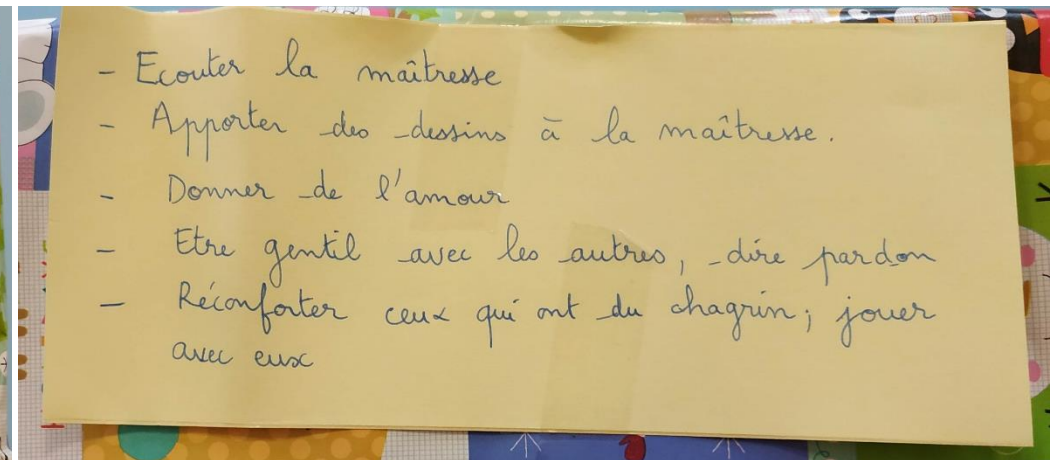 - Ecouter la maîtresse
- Apporter des dessins à la maîtresse.
- Donner de l'amour
- Etre gentil avec les autres, dire pardon
- Réconforter ceux qui ont du chagrin; jouer
avec eux